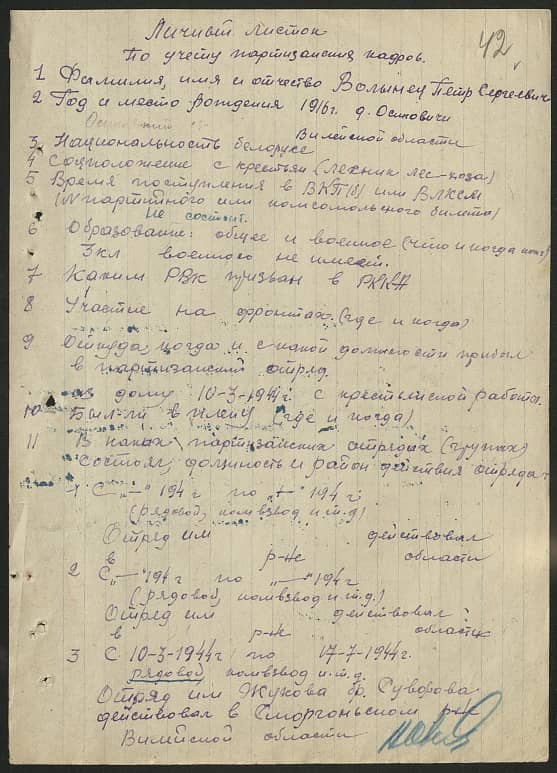 Личный листок
42
По учету партизанских кадров.
1 Фамилия, имя и отчество Волынец Петр Сергеевич
2 Год и место рождения 1916 г. д. Осиновичи
Вилейской области
3 Национальность белорусс
4 Соцположение с крестьян (техник лес-хоза)
5 Время поступления в ВКП(б) или ВЛКСМ
(№ партийного или комсомольского билета)
Не состоит.
6 Образование: общее и военное (что и когда)
3 кл военого не имеет.
7 Каким РВК призван в РККА
8 Участие на фронтах (где и когда)
9 Откуда, когда и с какой должности прибыл
в партизанский отряд.
из дому 10-3-1944 г. с крестьянской работы.
10 Был-ли в плену (где и когда)
11 В каких партизанских отрядах (группах)
состоял, должность и район действия отряда
1 С „—" 194 г по „—" 194 г.
(рядовой, комвзвод и т.д)
Отряд им действовал
в р-не области
2 С „—" 194 г по „—" 194 г
(рядовой, комвзвод и т.д.)
Отряд им действовал
в р-не области
3 С 10-3-1944 г по 17-7-1944 г.
рядовой, комвзвод и т.д.
Отряд им Жукова бр. Суворова
действовал в Сморгоньском р-не
Вилейской области